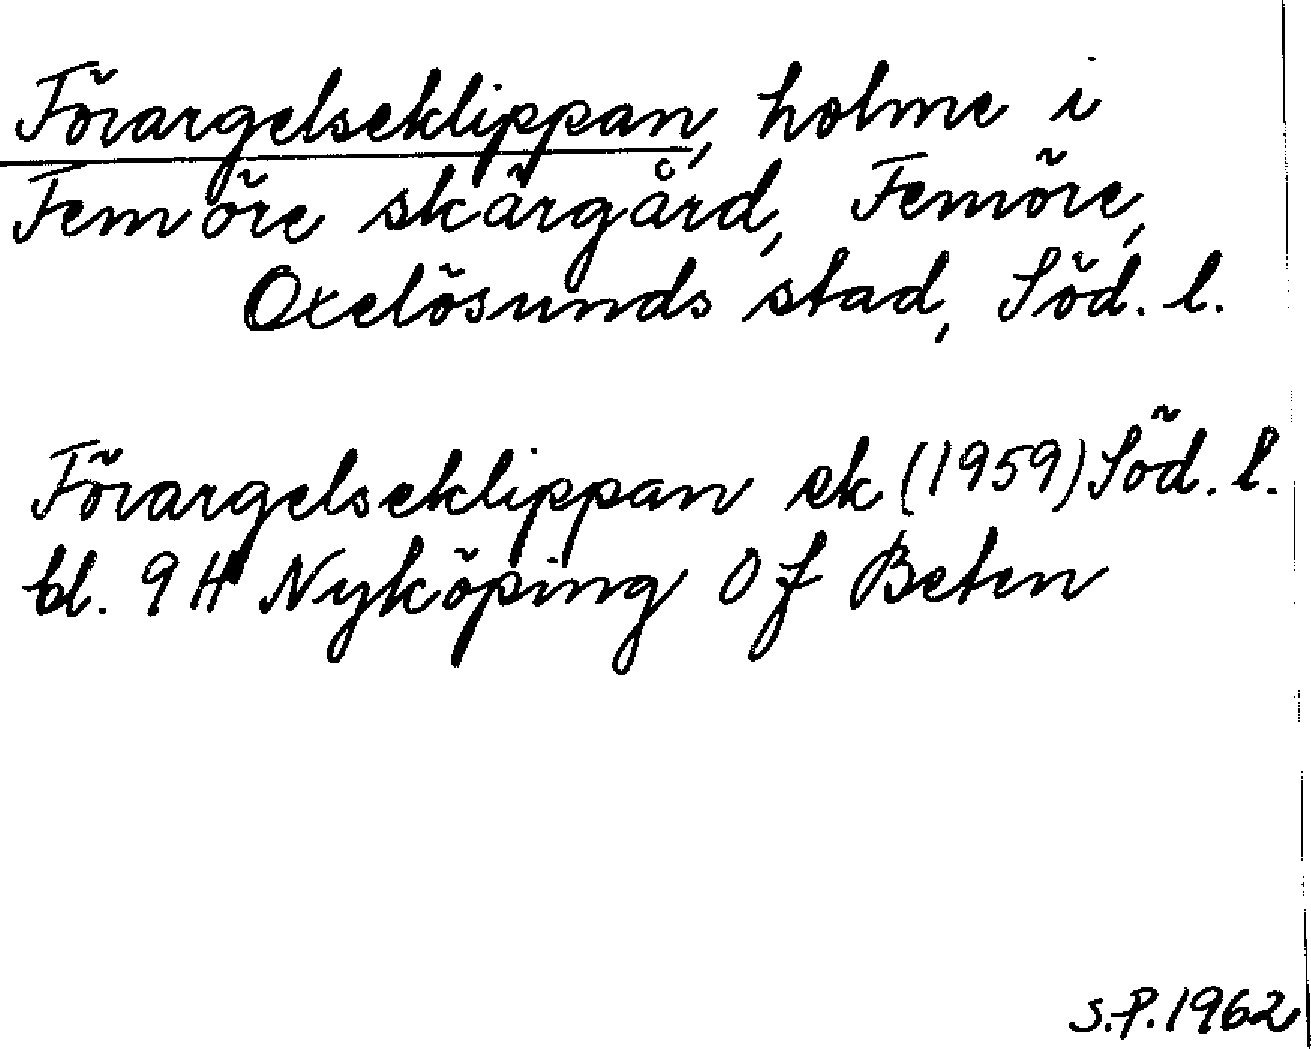 Förargelseklippan, holme i
Femöre skärgård, Femöre,
Oxelösunds stad, Söd. l.
Förargelseklippan ek (1959) Söd. l.
bl. 9 H Nyköping 0 f Beten
S.P. 1962